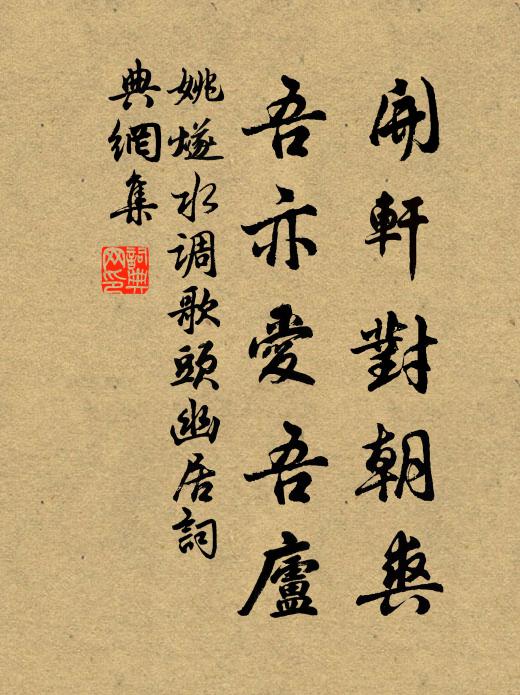 開軒對朝爽
吾亦愛吾廬
姚燧水调歌頭幽居詞
典網集
詞典網印